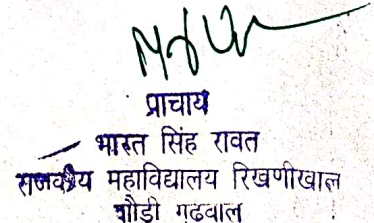 प्राचार्य
भारत सिंह रावत
राजकीय महाविद्यालय रिखणीखाल
पौड़ी गढ़वाल